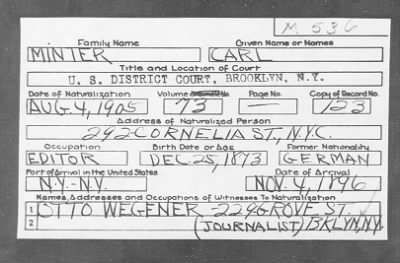 M 536
Family Name Given Name or Names
MINTER CARL
Title and Location of Court
U. S. DISTRICT COURT, BROOKLYN, N.Y.
Date of Naturalization Volume Page No. Copy of Record No.
AUG. 4, 1905 73 — 123
Address of Naturalized Person
292 CORNELIA ST., N.Y.C.
Occupation Birth Date or Age Former Nationality
EDITOR DEC. 25, 1873 GERMAN
Port of Arrival in the United States Date of Arrival
N.Y.-N.Y. NOV. 4, 1896
Names, Addresses and Occupations of Witnesses To Naturalization
1 OTTO WEGENER 229 GROVE ST.
2 (JOURNALIST) BKLYN, N.Y.